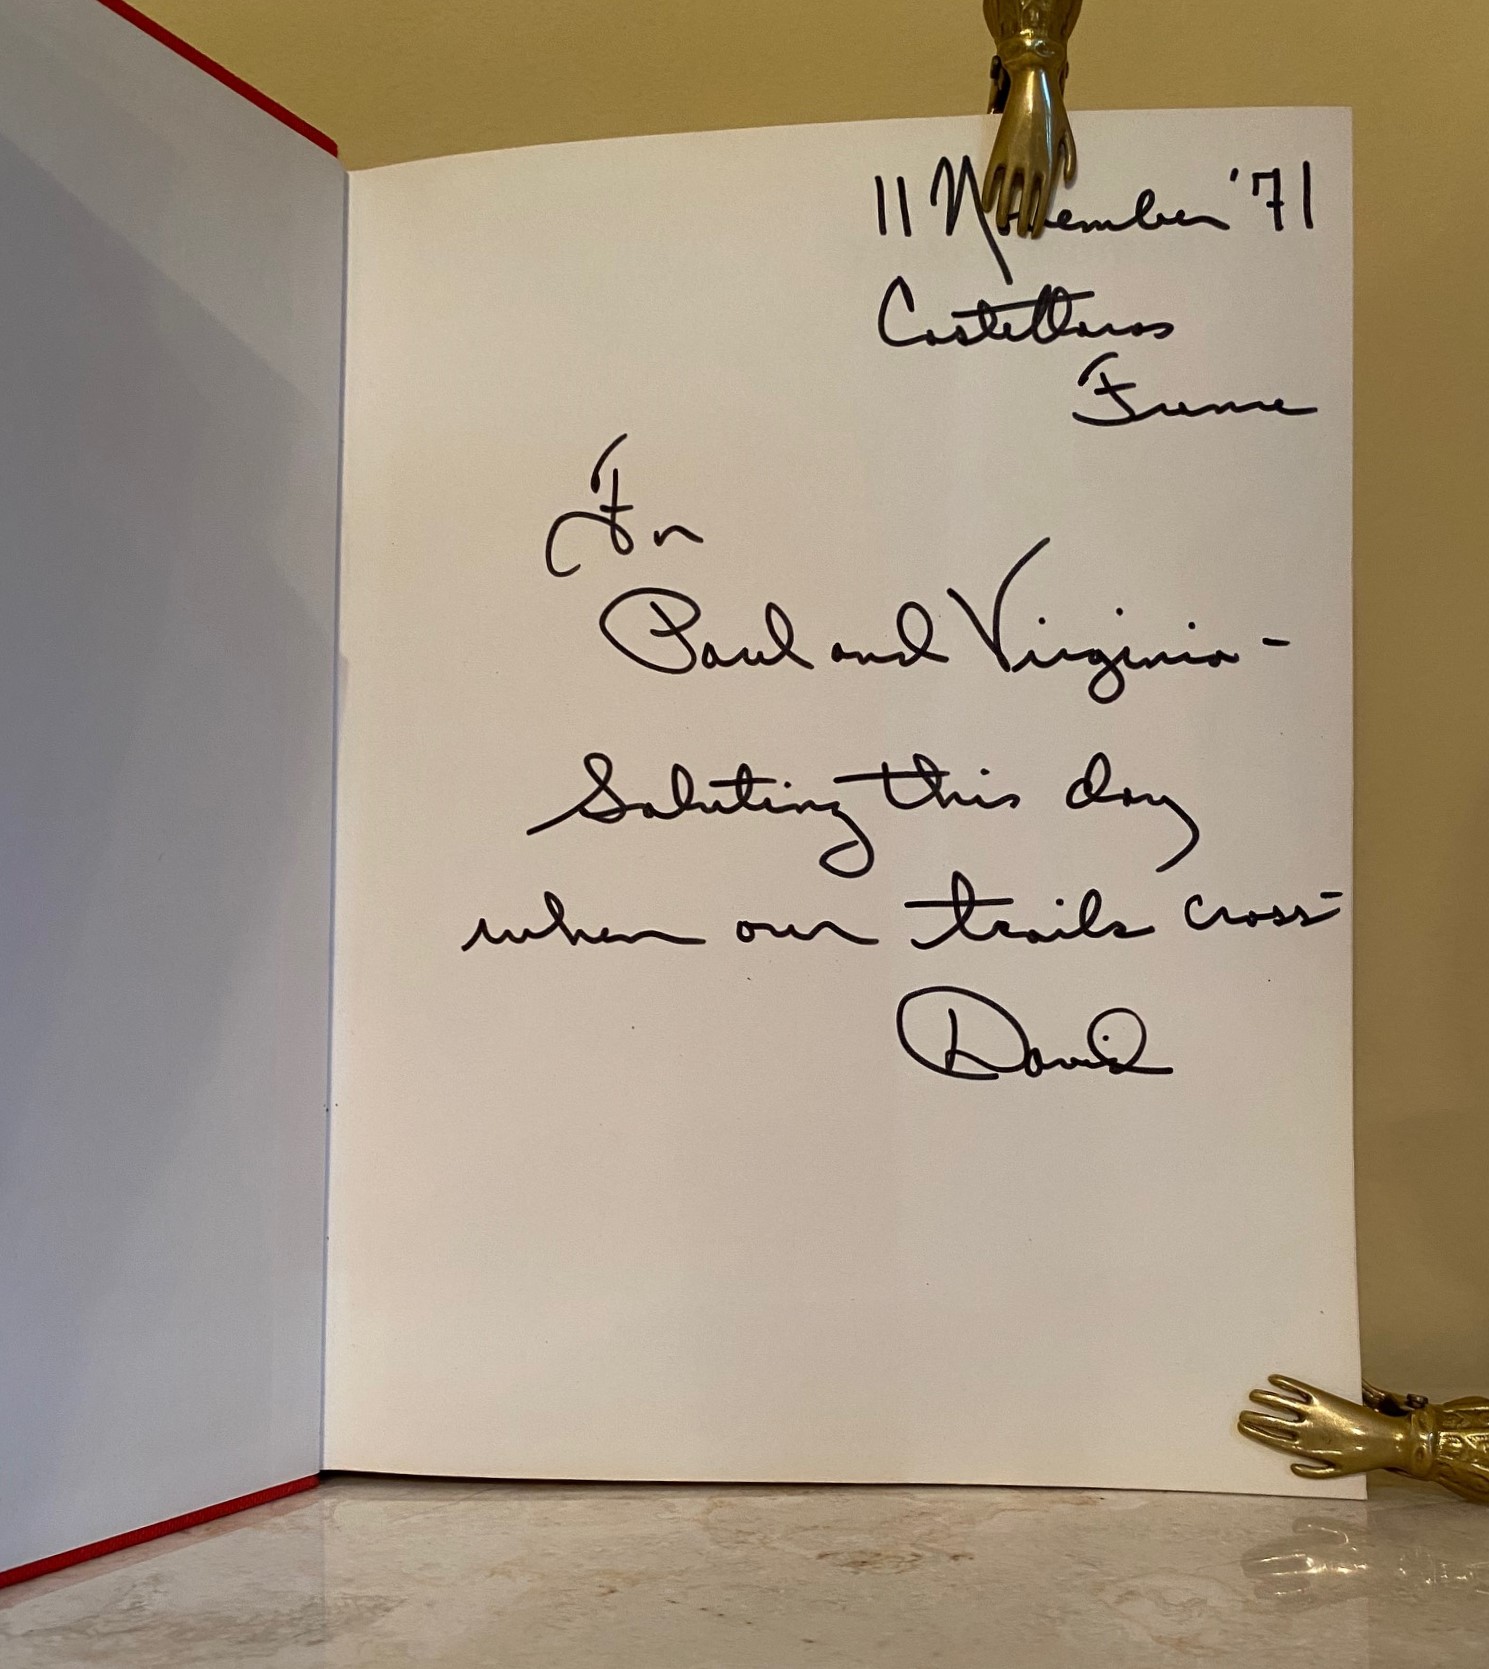 11 November '71
Castellaras
France
For
Paul and Virginia -
Saluting this day
when our trails cross -
David